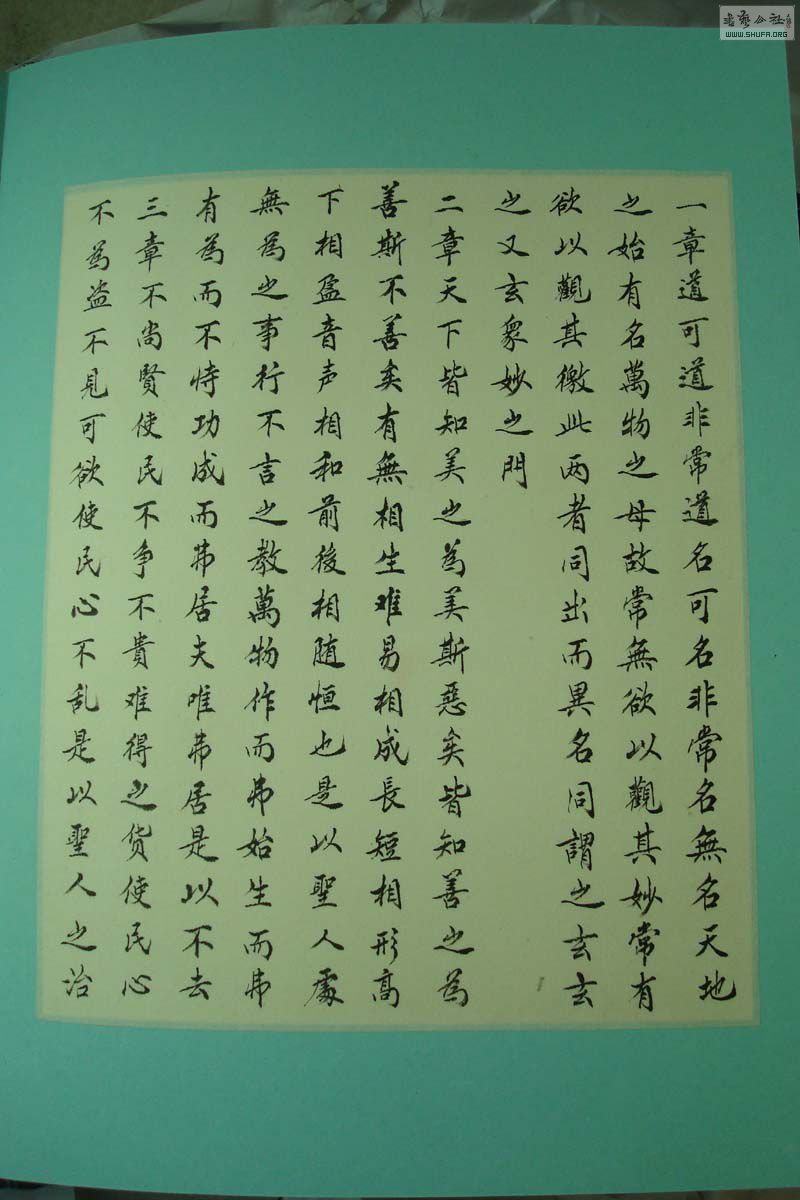 一章道可道非常道名可名非常名無名天地
之始有名萬物之母故常無欲以觀其妙常有
欲以觀其徼此两者同出而異名同謂之玄玄
之又玄衆妙之門
二章天下皆知美之為美斯惡矣皆知善之為
善斯不善矣有無相生难易相成長短相形高
下相盈音声相和前後相随恒也是以聖人處
無為之事行不言之教萬物作而弗始生而弗
有為而不恃功成而弗居夫唯弗居是以不去
三章不尚賢使民不争不貴难得之货使民心
不為盗不見可欲使民心不乱是以聖人之治
書藝公社
WWW.SHUFA.ORG